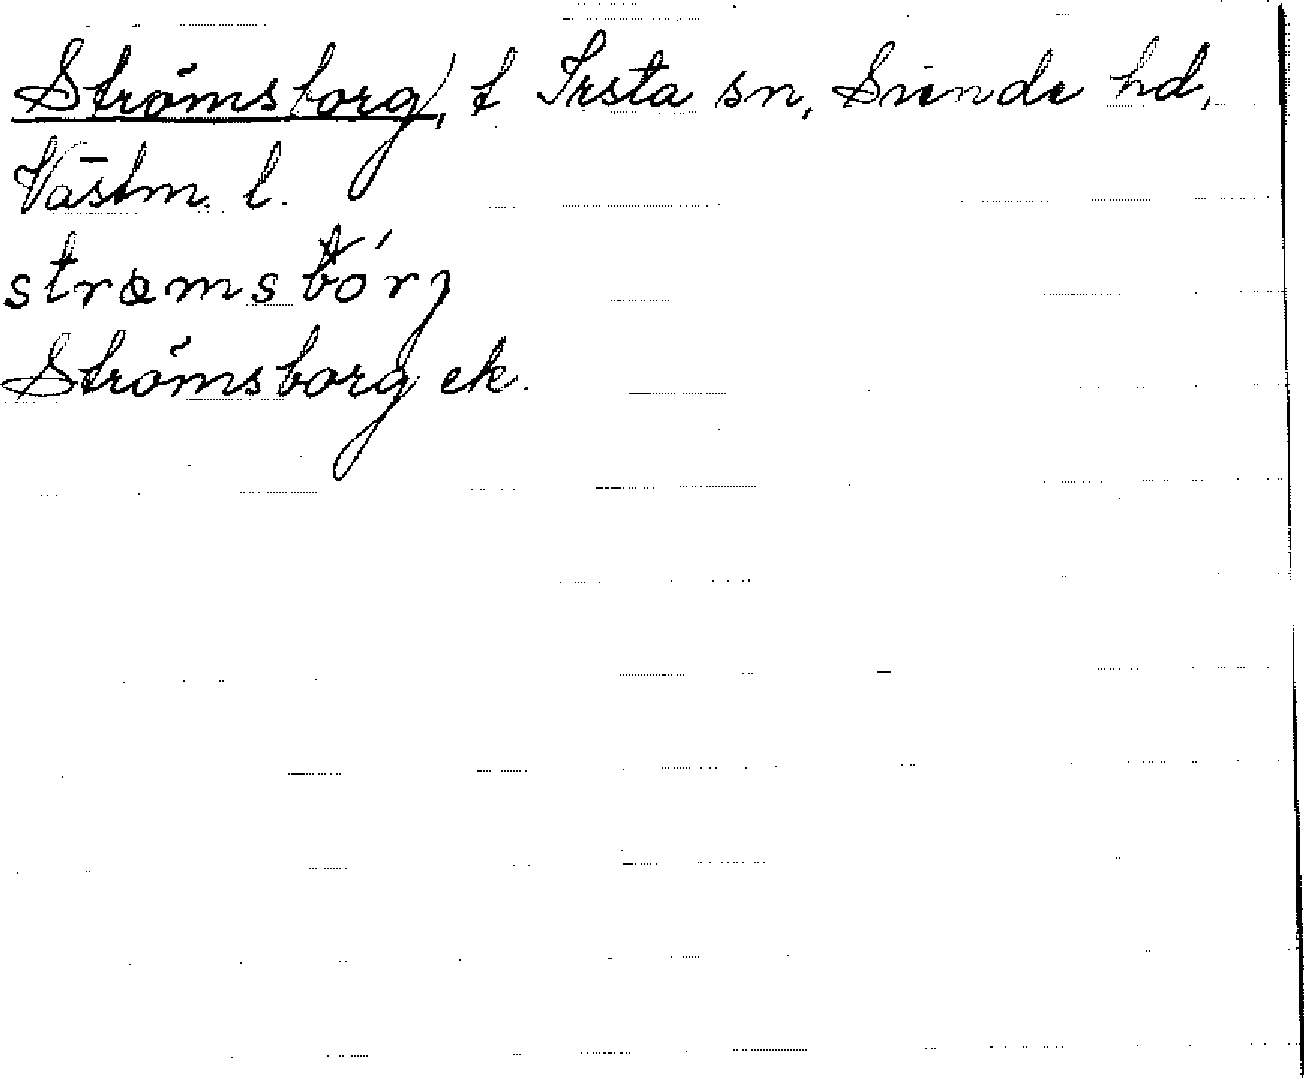 Strömsborg, t Irsta sn, Siende hd,
Västm. l.
strømsbórj
Strömsborg ek.